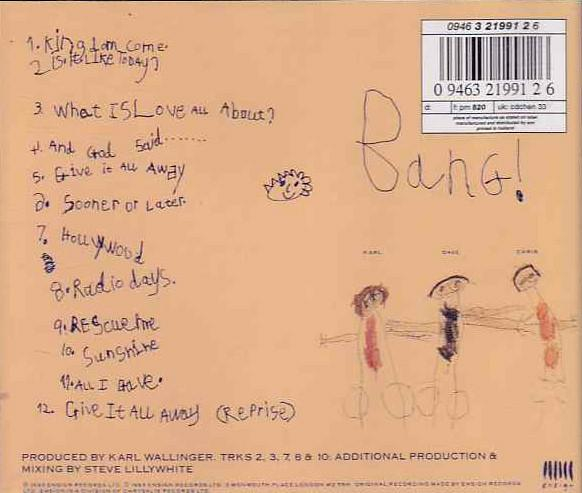 0946 3 21991 2 6
0 09463 21991 2 6
d:
f: pm 520
uk: cdchen 33
place of manufacture as stated on label
manufactured and distributed by emi
printed in holland
1. Kingdom come.
2 IS it LIKE TODAY?
3. What IS LOVE ALL About?
4. And God Said.......
5. Give it ALL AWAY
6. Sooner or Later.
7. HOLLYWOOD
8. Radio days.
9. RESCUE me
10. Sunshine
11. ALL I gave.
12. Give It All Away (Reprise)
Bang!
KARL
DAVE
CHRIS
PRODUCED BY KARL WALLINGER. TRKS 2, 3, 7, 8 & 10: ADDITIONAL PRODUCTION &
MIXING BY STEVE LILLYWHITE
ENSIGN